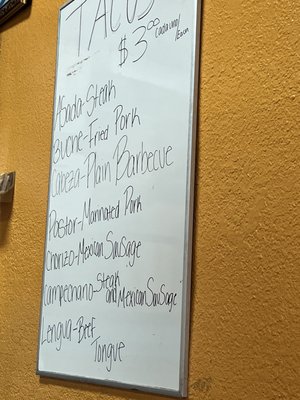 TACOS
$3.00 cada uno/
/Each
Asada-Steak
Buche-Fried Pork
Cabeza-Plain Barbecue
Pastor-Marinated Pork
Chorizo-Mexican Sausage
Campechano-Steak
and Mexican Sausage
Lengua-Beef
Tongue